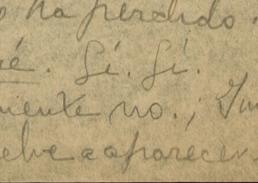 ha perdido.
é. Sí. Sí.
mente no.,
elve a aparecer